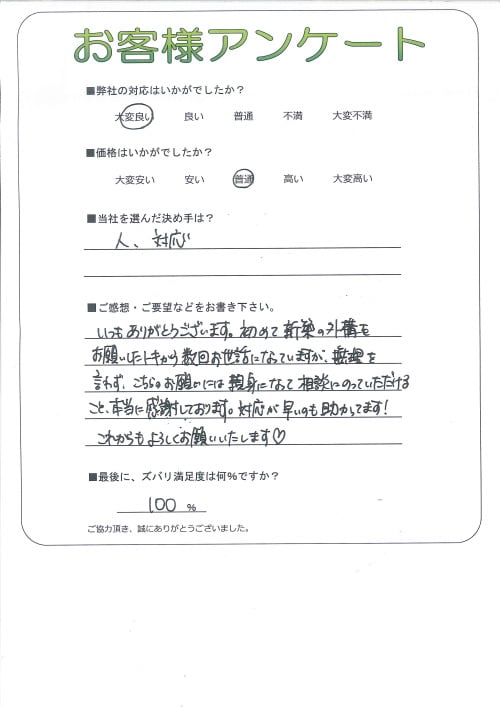 お客様アンケート
■弊社の対応はいかがでしたか？
大変良い 良い 普通 不満 大変不満
■価格はいかがでしたか？
大変安い 安い 普通 高い 大変高い
■当社を選んだ決め手は？
人、対応
■ご感想・ご要望などをお書き下さい。
いつもありがとうございます。初めて新築の外構を
お願いしたトキから数回お世話になっていますが、無理を
言わず、こちらのお願いには親身になって相談にのっていただける
こと、本当に感謝しております。対応が早いのも助かってます！
これからもよろしくお願いいたします♡
■最後に、ズバリ満足度は何％ですか？
100 ％
ご協力頂き、誠にありがとうございました。